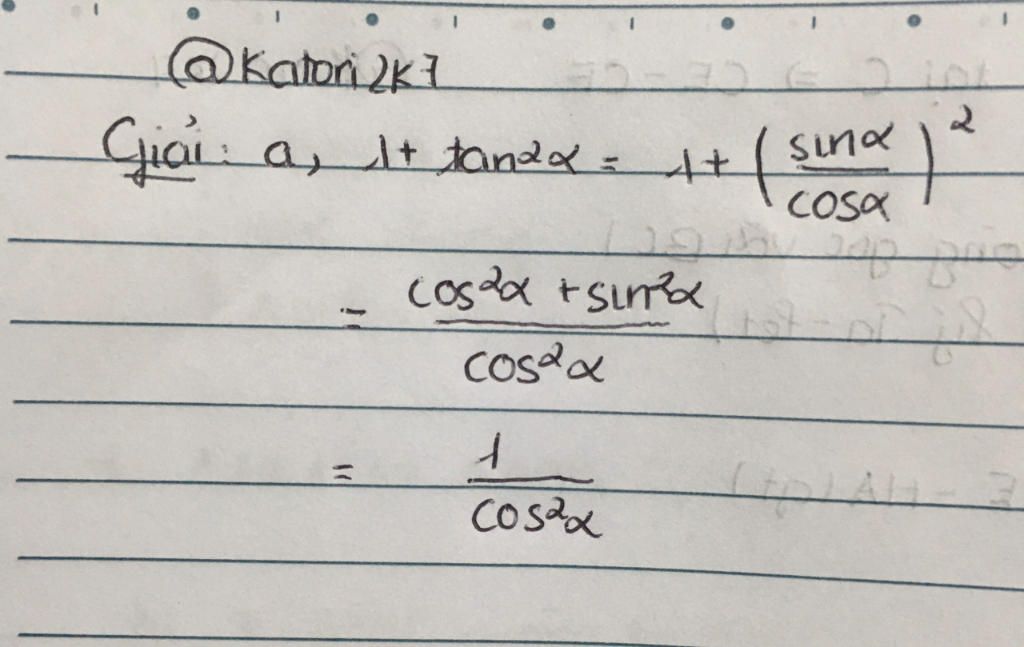 @Katori2k7
Giải: a, 1 + tan2α = 1 + (sinα / cosα)²
= cos²α + sin²α / cos²α
= 1 / cos²α